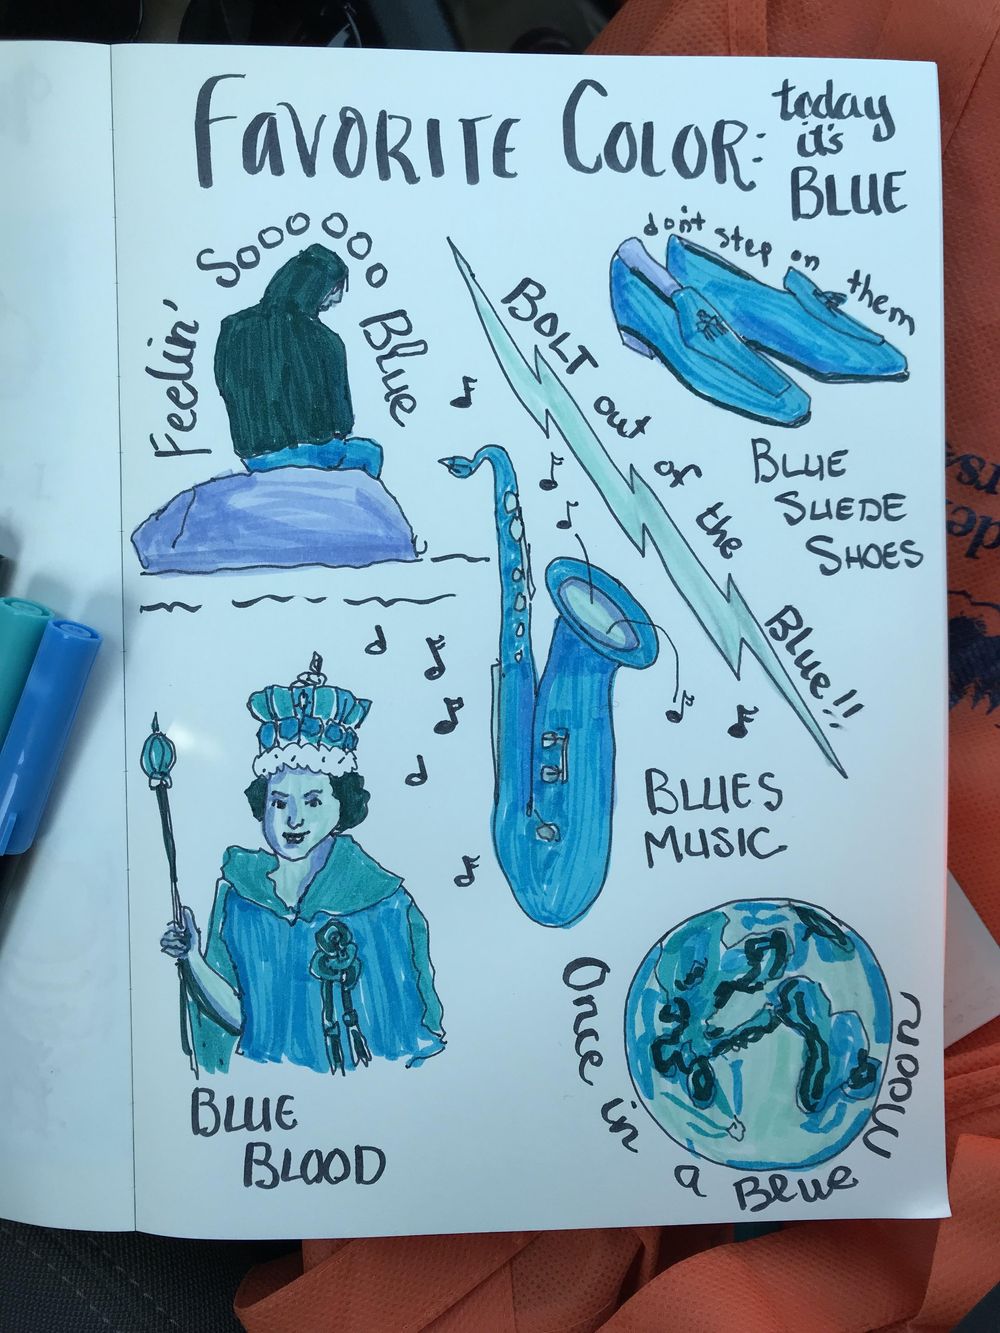 FAVORITE COLOR:
today
it's
BLUE
Feelin' Sooooooo Blue
don't step on them
BOLT out of the Blue!!
BLUE
SUEDE
SHOES
BLUES
MUSIC
BLUE
BLOOD
Once in a Blue Moon